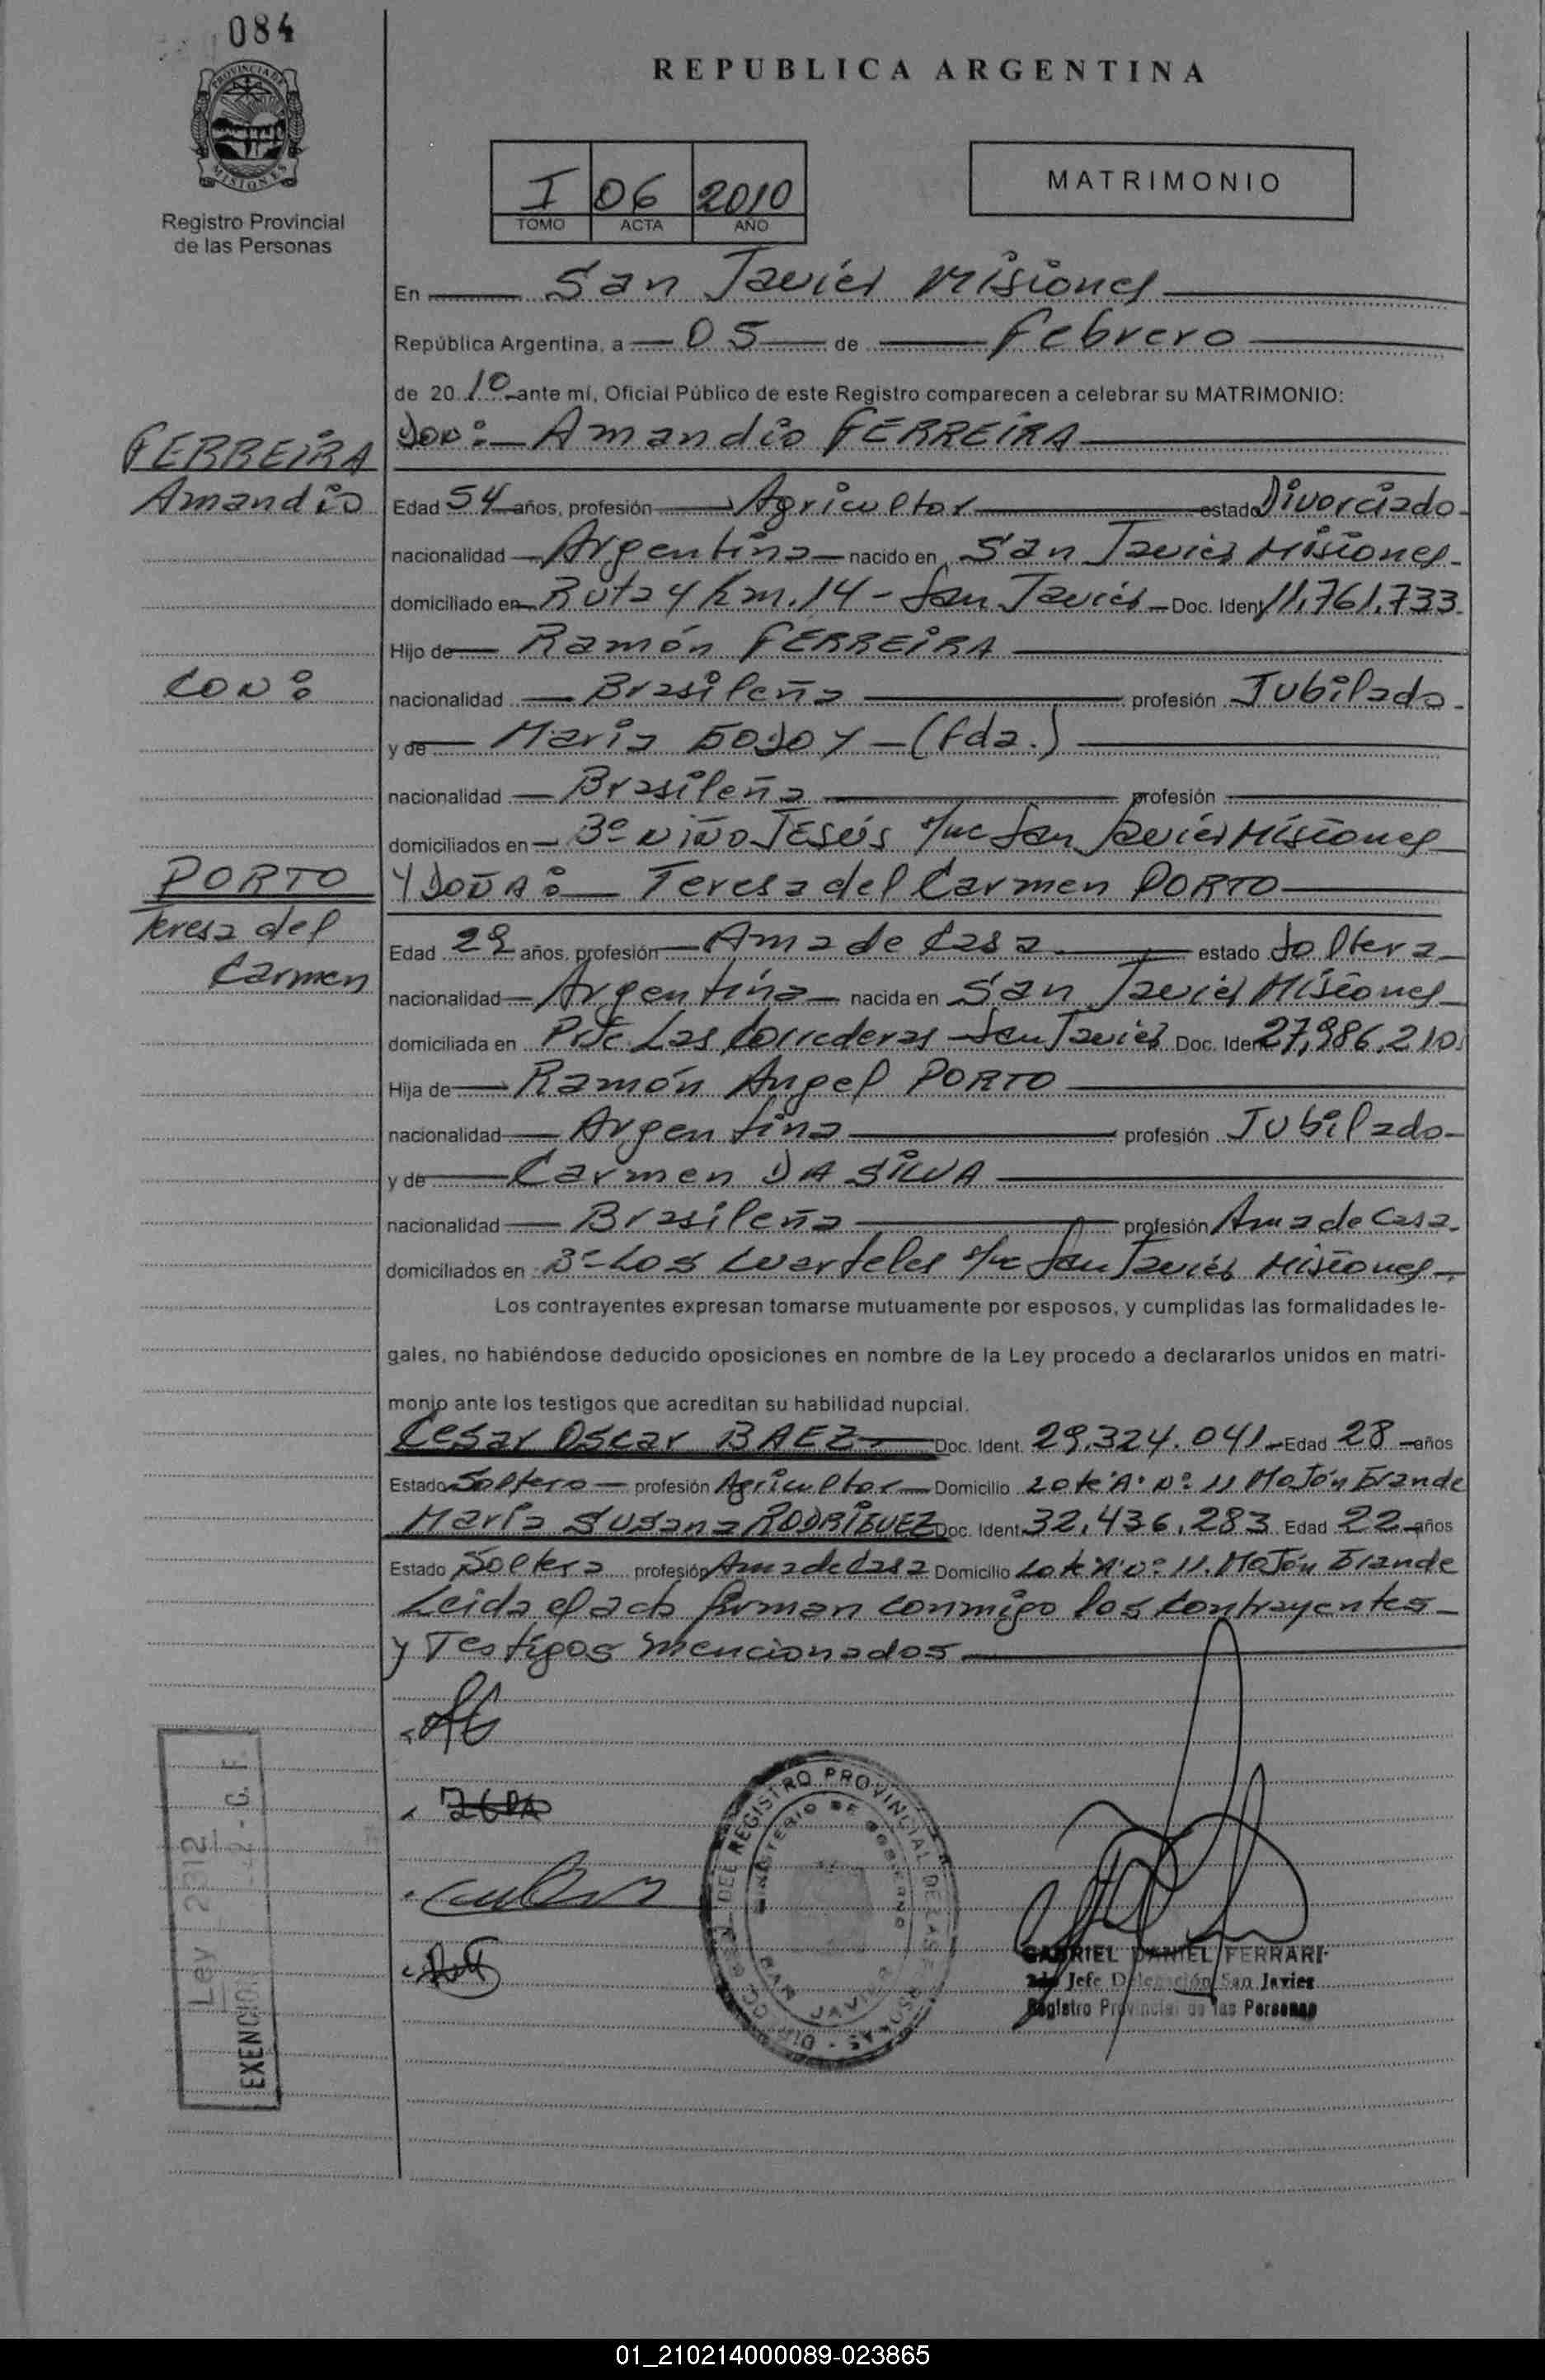 084
PROVINCIA DE
MISIONES
Registro Provincial
de las Personas
REPUBLICA ARGENTINA
I 06 2010
TOMO ACTA AÑO
MATRIMONIO
En San Javier Misiones
República Argentina, a 05 de febrero
de 2010 ante mí, Oficial Público de este Registro comparecen a celebrar su MATRIMONIO:
FERREIRA
Amandio
DON: Amandio FERREIRA
Edad 54 años, profesión Agricultor estado Divorciado
nacionalidad Argentina nacido en San Javier Misiones
domiciliado en Ruta 4 km. 14 - San Javier Doc. Ident 11.761.733
Hijo de Ramón FERREIRA
CON:
nacionalidad Brasileña profesión Jubilado
y de María GODOY - (fda.)
nacionalidad Brasileña profesión
domiciliados en Bº NIÑO JESÚS s/nc San Javier Misiones
PORTO
Teresa del
Carmen
Y DOÑA: Teresa del Carmen PORTO
Edad 29 años, profesión Ama de Casa estado Soltera
nacionalidad Argentina nacida en San Javier Misiones
domiciliada en Pje Las Correderas San Javier Doc. Ident 27.986.210
Hija de Ramón Angel PORTO
nacionalidad Argentina profesión Jubilado
y de Carmen DA SILVA
nacionalidad Brasileña profesión Ama de Casa
domiciliados en Bº Los Cuarteles s/nc San Javier Misiones
Los contrayentes expresan tomarse mutuamente por esposos, y cumplidas las formalidades le-
gales, no habiéndose deducido oposiciones en nombre de la Ley procedo a declararlos unidos en matri-
monio ante los testigos que acreditan su habilidad nupcial.
Cesar Oscar BAEZ Doc. Ident. 29.324.041 Edad 28 años
Estado Soltero profesión Agricultor Domicilio Lote "A" Nº 11 Mojón Grande
María Susana RODRÍGUEZ Doc. Ident. 32.436.283 Edad 22 años
Estado Soltera profesión Ama de Casa Domicilio Lote "A" Nº 11. Mojón Grande
Leida el acta firman conmigo los contrayentes
y Testigos mencionados
Ley 2912
EXENCION
REGISTRO PROVINCIAL DE LAS PERSONAS
MINISTERIO DE GOBIERNO
SAN JAVIER
GABRIEL DANIEL FERRARI
2do Jefe Delegación San Javier
Registro Provincial de las Personas
01_210214000089-023865